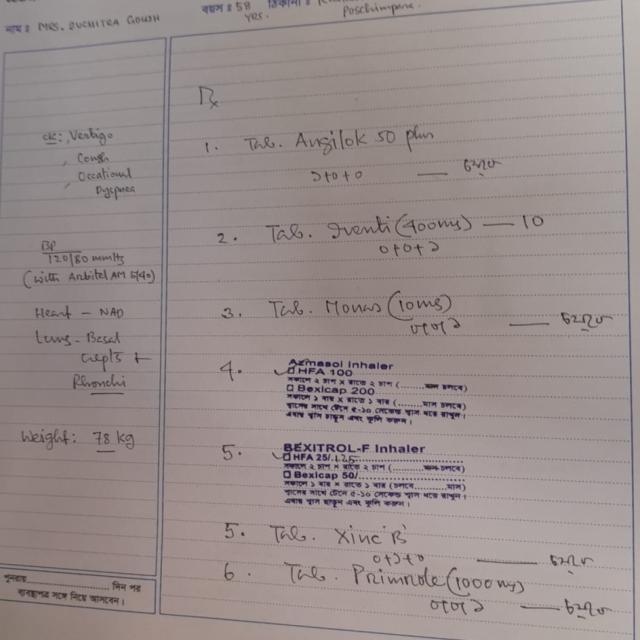 নাম : MRS. SUCHITRA GOUSH
বয়স : 58 YRS.
ঠিকানা :
Poschimpara.
cc:, Vertigo
, Cough
, Occational
Dyspnea
BP
120/80 mmHg
(with Arbitel AM 5/40)
Heart - NAD
Lung - Basal
crepts +
Rhonchi
Weight: 78 kg
পুনরায় .................. দিন পর
ব্যবস্থাপত্র সঙ্গে নিয়ে আসবেন।
Rx
1. Tab. Angilok 50 plus
১+০+০ — চলবে
2. Tab. Iventi (400mg) — 10
০+০+১
3. Tab. Monas (10mg)
০+০+১ — চলবে
4. Azmasol Inhaler
HFA 100
সকালে ২ চাপ × রাতে ২ চাপ (........ মাস চলবে)
Bexicap 200
সকালে ১ বার × রাতে ১ বার (........মাস চলবে)
শ্বাসের সাথে টেনে ৫-১০ সেকেন্ড শ্বাস ধরে রাখুন।
5. BEXITROL-F Inhaler
HFA 25/.125
সকালে ২ চাপ × রাতে ২ চাপ (........ মাস চলবে)
Bexicap 50/......
সকালে ১ বার × রাতে ১ বার (চলবে........মাস)
শ্বাসের সাথে টেনে ৫-১০ সেকেন্ড শ্বাস ধরে রাখুন।
5. Tab. Xinc 'B'
০+১+০ — চলবে
6. Tab. Primrole (1000mg)
০+০+১ — চলবে